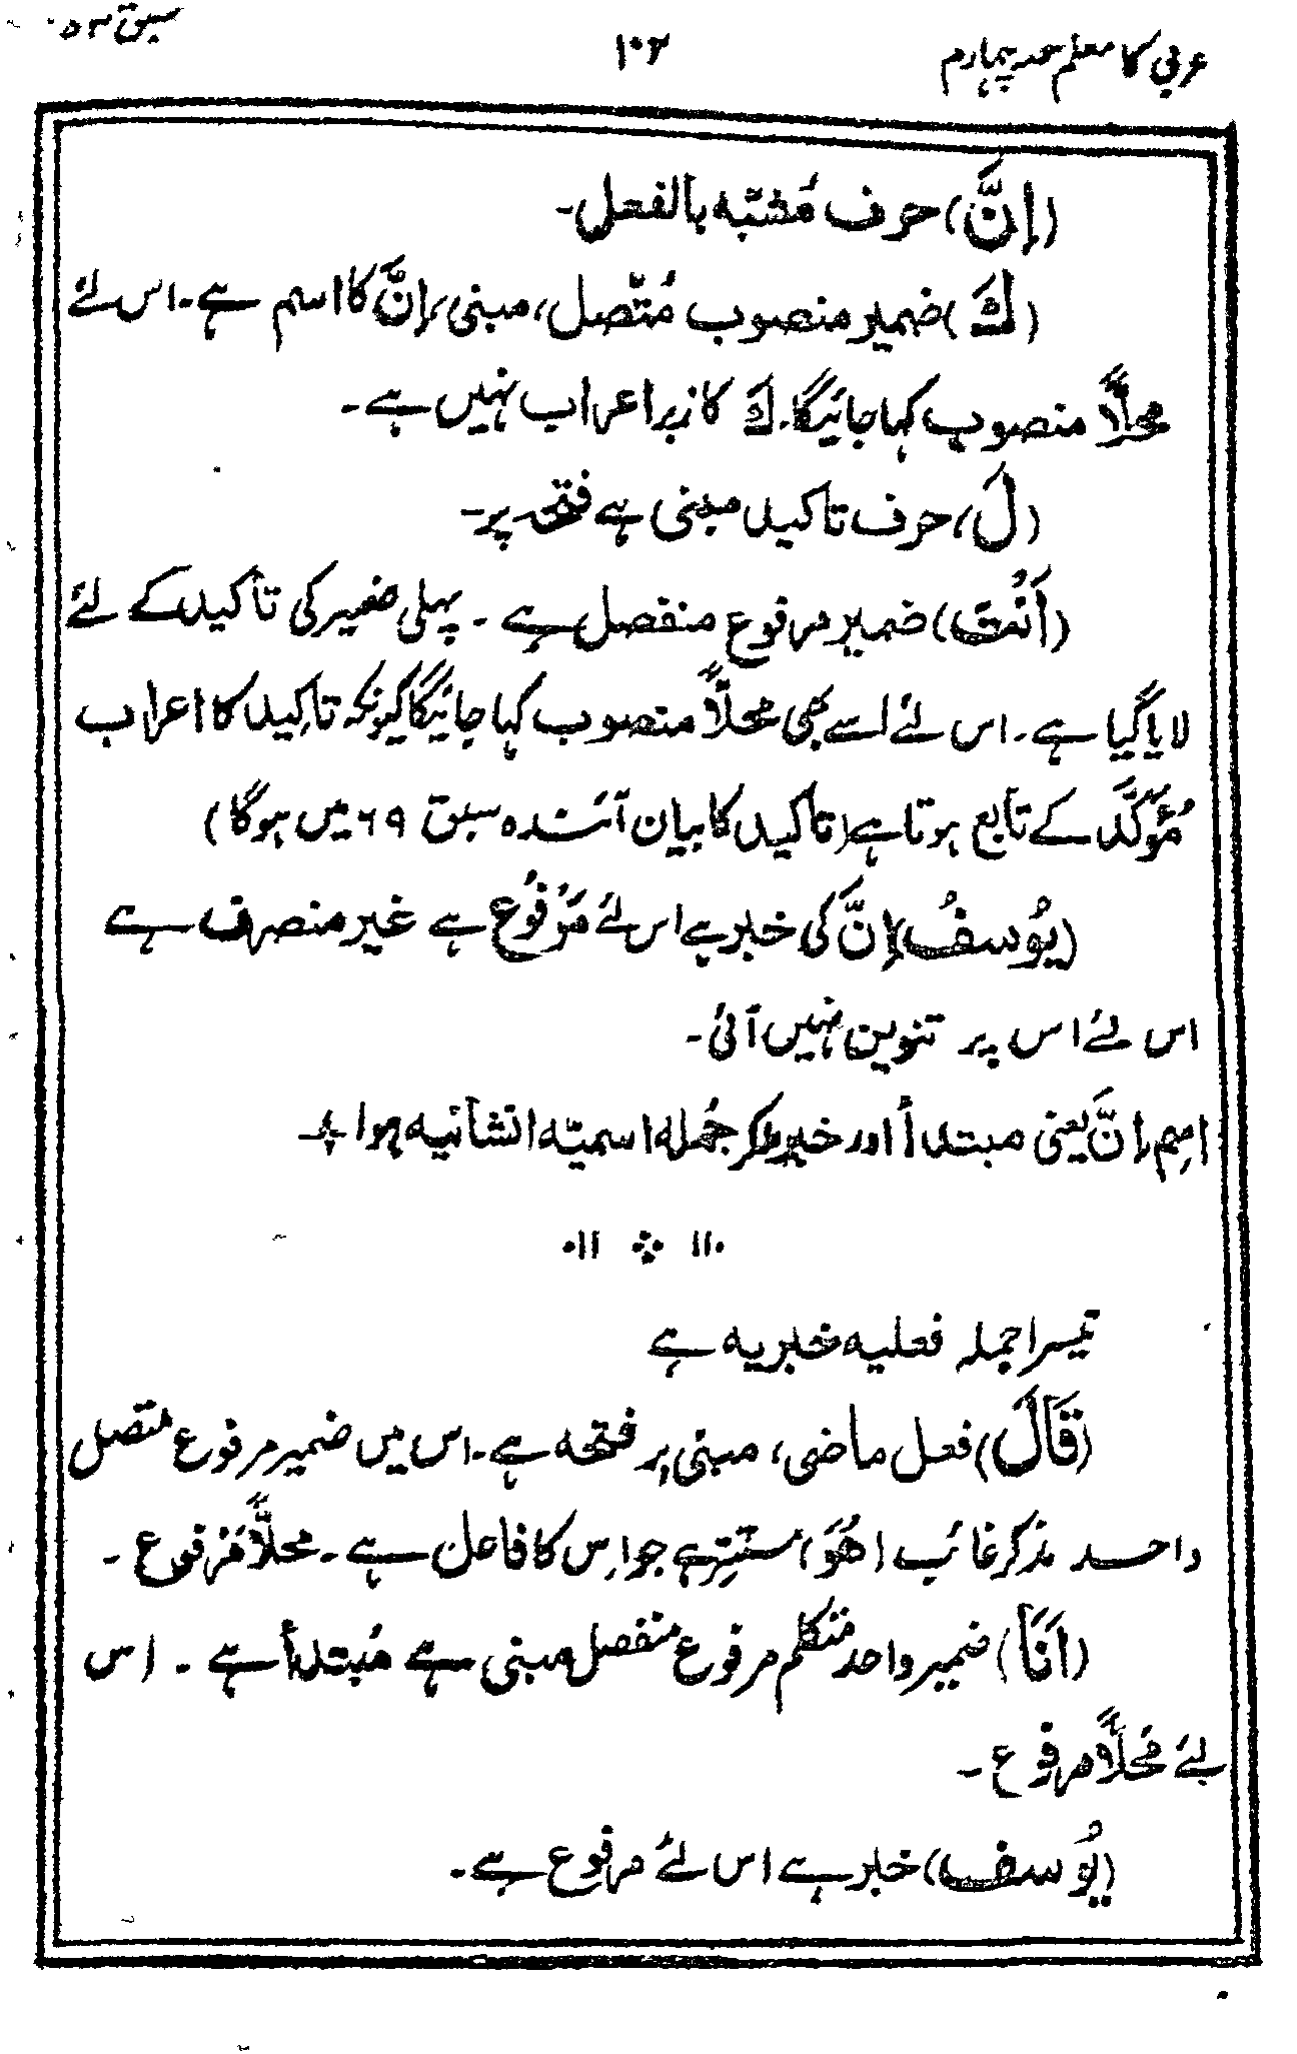 عربی کا معلم حصہ چہارم
۱۰۲
سبق ۵۳
(إِنَّ) حرف مُشبّہ بالفعل۔
(كَ) ضمیر منصوب مُتّصل، مبنی، إِنَّ کا اسم ہے۔ اس لئے
محلّاً منصوب کہا جائیگا۔ كَ کا زبر اعراب نہیں ہے۔
(لَ) حرف تاکید مبنی ہے فتحہ پر۔
(أَنْتَ) ضمیر مرفوع منفصل ہے۔ پہلی ضمیر کی تأکید کے لئے
لایا گیا ہے۔ اس لئے اسے بھی محلّاً منصوب کہا جائیگا کیونکہ تاکید کا اعراب
مُؤَکَّد کے تابع ہوتا ہے (تاکید کا بیان آئندہ سبق ۶۹ میں ہوگا)
(یُوسفُ) إِنَّ کی خبر ہے اس لئے مَرْفُوع ہے غیر منصرف ہے
اس لئے اس پر تنوین نہیں آئی۔
اسم إِنَّ یعنی مبتدأ اور خبر ملکر جُملہ اسمیّہ انشائیہ ہوا۔
تیسرا جملہ فعلیہ خبریہ ہے
(قَالَ) فعل ماضی، مبنی بر فتحہ ہے۔ اس میں ضمیر مرفوع متصل
واحد مذکر غائب (هُوَ) مستتِر ہے جو اِس کا فاعل ہے۔ محلّاً مَرفوع۔
(اَنَا) ضمیر واحد متکلم مرفوع منفصل مبنی ہے مُبتدأ ہے۔ اس
لئے مَحلّاً مرفوع۔
(یُوسف) خبر ہے اس لئے مرفوع ہے۔